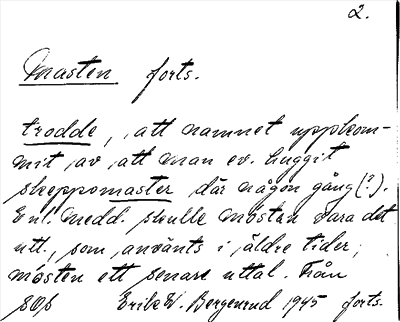 2.
Masten forts.
trodde, att namnet uppkom-
mit av att man ev. huggit
skeppsmaster där någon gång (?).
Enl. medd. skulle mästen vara det
utt., som använts i äldre tider,
mästen ett senare uttal. Från
Erik W. Bergenrud 1945 forts.